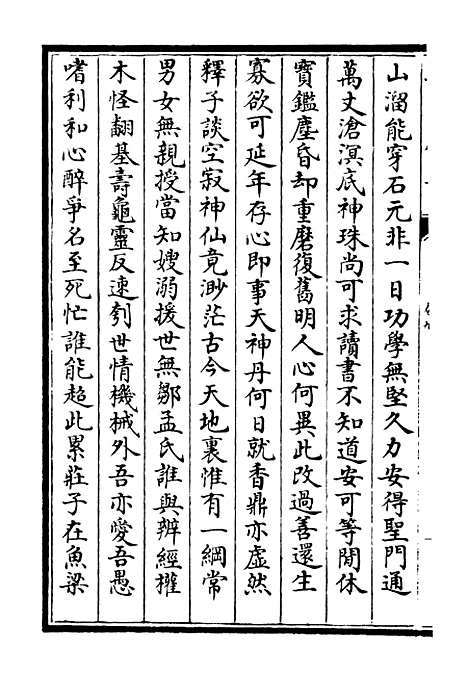 山溜能穿石元非一日功學無堅久力安得聖門通
萬丈滄溟底神珠尚可求讀書不知道安可等閒休
寶鑑塵昏却重磨復舊明人心何異此改過善還生
寡欲可延年存心即事天神丹何日就香鼎亦虛然
釋子談空寂神仙竟渺茫古今天地裏惟有一綱常
男女無親授當知嫂溺援世無鄒孟氏誰與辨經權
木怪翻基壽龜靈反速刳世情機械外吾亦愛吾愚
嗜利和心醉爭名至死忙誰能超此累莊子在魚梁